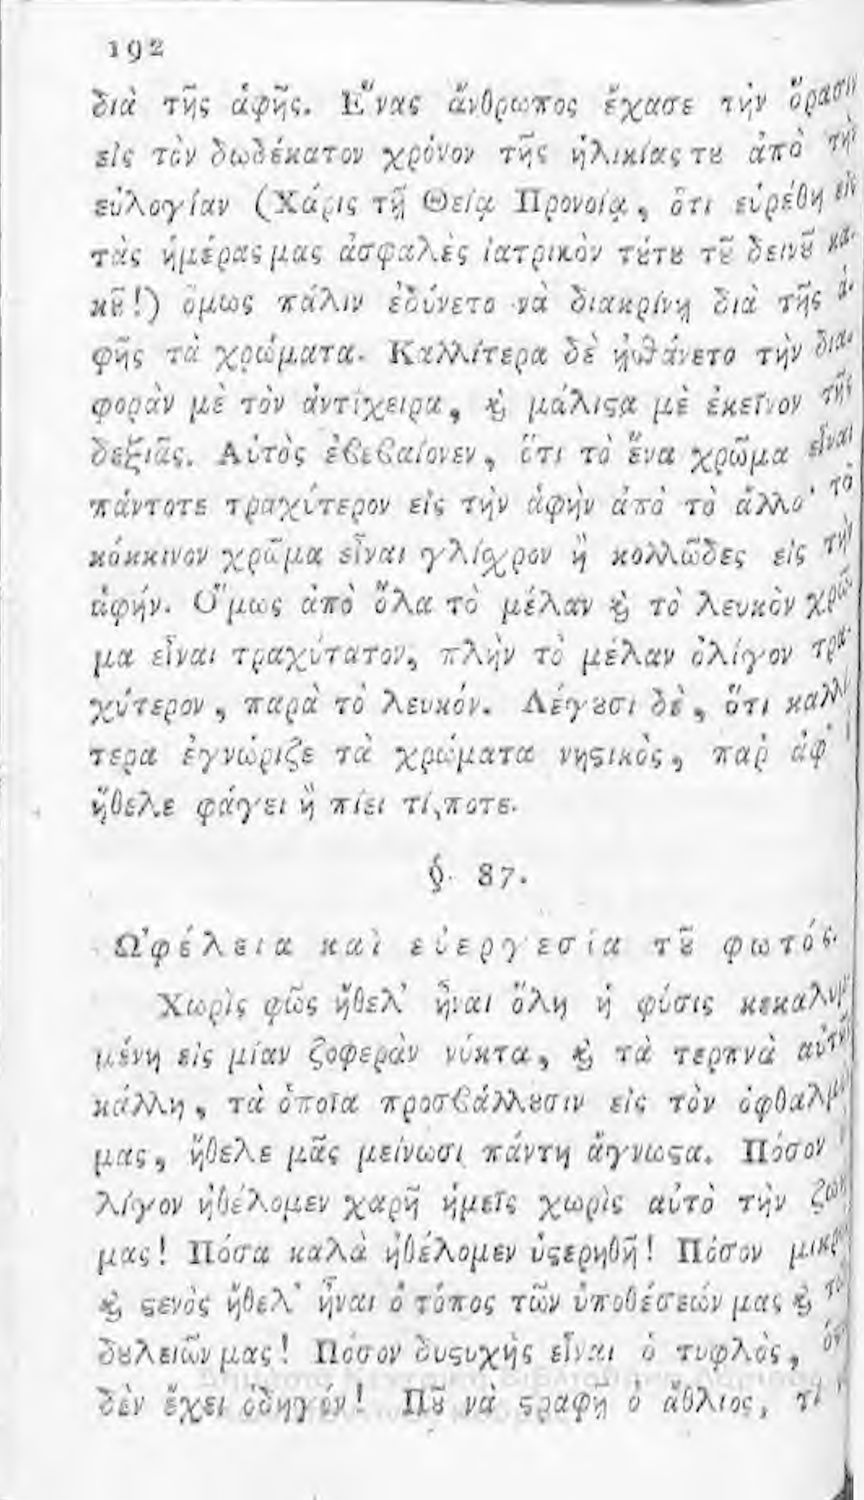 192
διὰ τῆς ἁφῆς. Ἕνας ἄνθρωπος ἔχασε τὴν ὅρασιν
εἰς τὸν δωδέκατον χρόνον τῆς ἡλικίας τȣ ἀπὸ τὴν
εὐλογίαν (Χάρις τῇ Θείᾳ Προνοίᾳ, ὅτι εὑρέθη εἰς
τὰς ἡμέρας μας ἀσφαλὲς ἰατρικὸν τȣ́τȣ τȣ͂ δεινȣ͂ κα-
κȣ͂!) ὅμως πάλιν ἐδύνετο νὰ διακρίνῃ διὰ τῆς ἁ-
φῆς τὰ χρώματα. Καλλίτερα δὲ ᾐσθάνετο τὴν δια-
φορὰν μὲ τὸν ἀντίχειρα, ϗ μάλιςα μὲ ἐκεῖνον τῆς
δεξιᾶς. Αὐτὸς ἐβεβαίονεν, ὅτι τὸ ἕνα χρῶμα εἶναι
πάντοτε τραχύτερον εἰς τὴν ἁφὴν ἀπὸ τὸ ἄλλο· τὸ
κόκκινον χρῶμα εἶναι γλίσχρον ἢ κολλῶδες εἰς τὴν
ἁφήν. Ὅμως ἀπὸ ὅλα τὸ μέλαν ϗ τὸ λευκὸν χρῶ-
μα εἶναι τραχύτατον, πλὴν τὸ μέλαν ὀλίγον τρα-
χύτερον, παρὰ τὸ λευκόν. Λέγȣσι δὲ, ὅτι καλλί
τερα ἐγνώριζε τὰ χρώματα νηςικὸς, παρ ἀφ'
ἤθελε φάγει ἢ πίει τί,ποτε.
§. 87.
Ὠφέλεια καὶ εὐεργεσία τȣ͂ φωτός.
Χωρὶς φῶς ἤθελ' ἦναι ὅλη ἡ φύσις κεκαλυμ
μένη εἰς μίαν ζοφερὰν νύκτα, ϗ τὰ τερπνὰ αὐτῆς
κάλλη, τὰ ὁποῖα προσβάλλȣσιν εἰς τὸν ὀφθαλμὸν
μας, ἤθελε μᾶς μείνωσι πάντη ἄγνωςα. Πόσον
λίγον ἠθέλομεν χαρῆ ἡμεῖς χωρὶς αὐτὸ τὴν ζωὴν
μας! Πόσα καλὰ ἠθέλομεν ὑςερηθῆ! Πόσον μικρὸς
ϗ ςενὸς ἤθελ' ἦναι ὁ τόπος τῶν ὑποθέσεών μας ϗ τῶν
δȣλειῶν μας! Πόσον δυςυχὴς εἶναι ὁ τυφλὸς,
δὲν ἔχει ὁδηγόν! Πȣ͂ νὰ ςραφῆ ὁ ἄθλιος, τί